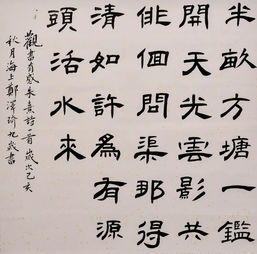 半畝方塘一鑑
開天光雲影共
俳佪問渠那得
清如許為有源
頭活水來
觀書有感朱熹詩一首歲次己亥
秋月海上鄭澤九歲書